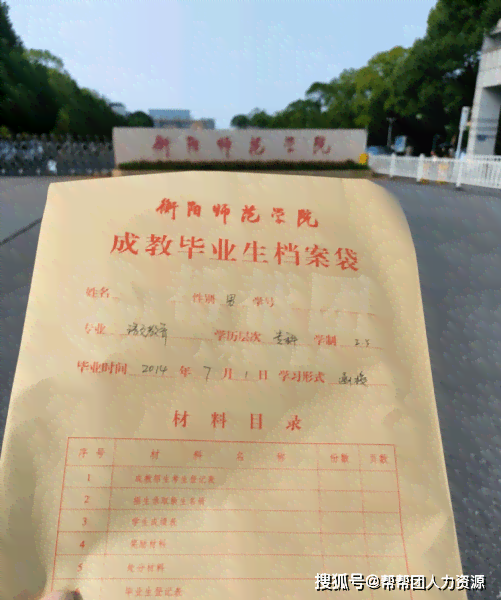 衡阳师范学院
衡阳师范学院
成教毕业生档案袋
姓名 性别 男 学号
专业 语文教育 学历层次 专科 学制 2.5
毕业时间 2014 年 7 月 1 日 学习形式 函授
材料目录
序号 材料名称 份数 页数
1 成教招生考生登记表
2 招生录取新生名册
3 学生成绩表
4 奖励材料
5 处分材料
毕业生登记表
搜狐号@帮帮团人力资源